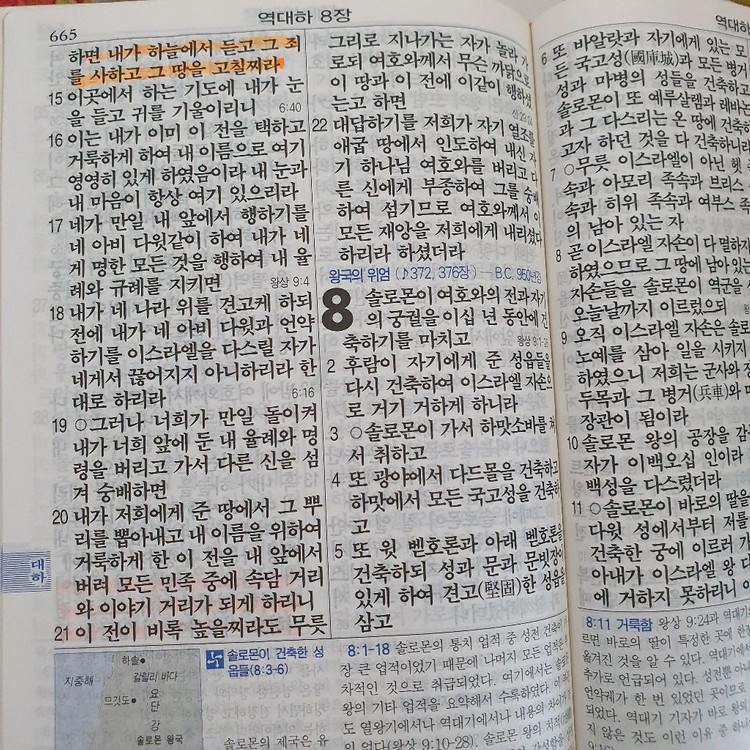 665
역대하 8장
하면 내가 하늘에서 듣고 그 죄
를 사하고 그 땅을 고칠찌라
15 이곳에서 하는 기도에 내가 눈
을 들고 귀를 기울이리니 6:40
16 이는 내가 이미 이 전을 택하고
거룩하게 하여 내 이름으로 여기
영영히 있게 하였음이라 내 눈과
내 마음이 항상 여기 있으리라
17 네가 만일 내 앞에서 행하기를
네 아비 다윗같이 하여 내가 네
게 명한 모든 것을 행하여 내 율
례와 규례를 지키면 왕상 9:4
18 내가 네 나라 위를 견고케 하되
전에 내가 네 아비 다윗과 언약
하기를 이스라엘을 다스릴 자가
네게서 끊어지지 아니하리라 한
대로 하리라 6:16
19 ○그러나 너희가 만일 돌이켜
내가 너희 앞에 둔 내 율례와 명
령을 버리고 가서 다른 신을 섬
겨 숭배하면
20 내가 저희에게 준 땅에서 그 뿌
리를 뽑아내고 내 이름을 위하여
거룩하게 한 이 전을 내 앞에서
버려 모든 민족 중에 속담 거리
와 이야기 거리가 되게 하리니
21 이 전이 비록 높을찌라도 무릇
그리로 지나가는 자가 놀라
로되 여호와께서 무슨 까닭으로
이 땅과 이 전에 이같이 행하셨
는고 하면
22 대답하기를 저희가 자기 열조를
애굽 땅에서 인도하여 내신 자
기 하나님 여호와를 버리고 다
른 신에게 부종하여 그를 숭배
하여 섬기므로 여호와께서 이
모든 재앙을 저희에게 내리셨다
하리라 하셨더라
왕국의 위엄 (♪372, 376장) ─ B.C. 950년경
8 솔로몬이 여호와의 전과 자기
의 궁궐을 이십 년 동안에 건
축하기를 마치고 왕상 9:1-28
2 후람이 자기에게 준 성읍들을
다시 건축하여 이스라엘 자손으
로 거기 거하게 하니라
3 ○솔로몬이 가서 하맛소바를 쳐
서 취하고
4 또 광야에서 다드몰을 건축하고
하맛에서 모든 국고성을 건축하
고
5 또 윗 벧호론과 아래 벧호론을
건축하되 성과 문과 문빗장이
있게 하여 견고(堅固)한 성읍을
삼고
역대하
6 또 바알랏과 자기에게 있는 모
든 국고성(國庫城)과 모든 병거
성과 마병의 성들을 건축하고
솔로몬이 또 예루살렘과 레바논
과 그 다스리는 온 땅에 건축
고자 하던 것을 다 건축하니라
7 ○무릇 이스라엘이 아닌 헷
속과 아모리 족속과 브리스
속과 히위 족속과 여부스 족
의 남아 있는 자
8 곧 이스라엘 자손이 다 멸하지
하였으므로 그 땅에 남아 있는
자손들을 솔로몬이 역군을 삼
오늘날까지 이르렀으되
9 오직 이스라엘 자손은 솔로몬
노예를 삼아 일을 시키지
하였으니 저희는 군사와 장
두목과 그 병거(兵車)와
장관이 됨이라
10 솔로몬 왕의 공장을 감
자가 이백오십 인이라
백성을 다스렸더라
11 ○솔로몬이 바로의 딸을
다윗 성에서부터 저를
건축한 궁에 이르러
아내가 이스라엘 왕 다
에 거하지 못하리니
대하
지중해
하솔
갈릴리 바다
므깃도
요
단
강
솔로몬 왕국
솔로몬이 건축한 성
읍들(8:3-6)
솔로몬의 제국은 유
8:1-18 솔로몬의 통치 업적 중 성전 건축이 가
장 큰 업적이었기 때문에 나머지 모든 업적은
차적인 것으로 취급되었다. 여기에서는 솔로
왕의 기타 업적을 요약해서 수록하였다. 이
도 열왕기에서나 역대기에서나 내용의 차이가
이 없다(왕상 9:10-28).
8:11 거룩함 왕상 9:24과 역대기
르면 바로의 딸이 특정한 곳에 한
옮겨진 것을 알 수 있다. 역대기에서
추가로 언급되어 있다. 성전뿐 아
언약궤가 한 번 있었던 곳이므로
되었다. 역대기 기자가 바로 왕의
지 않은 것도 이런 이유 중 하